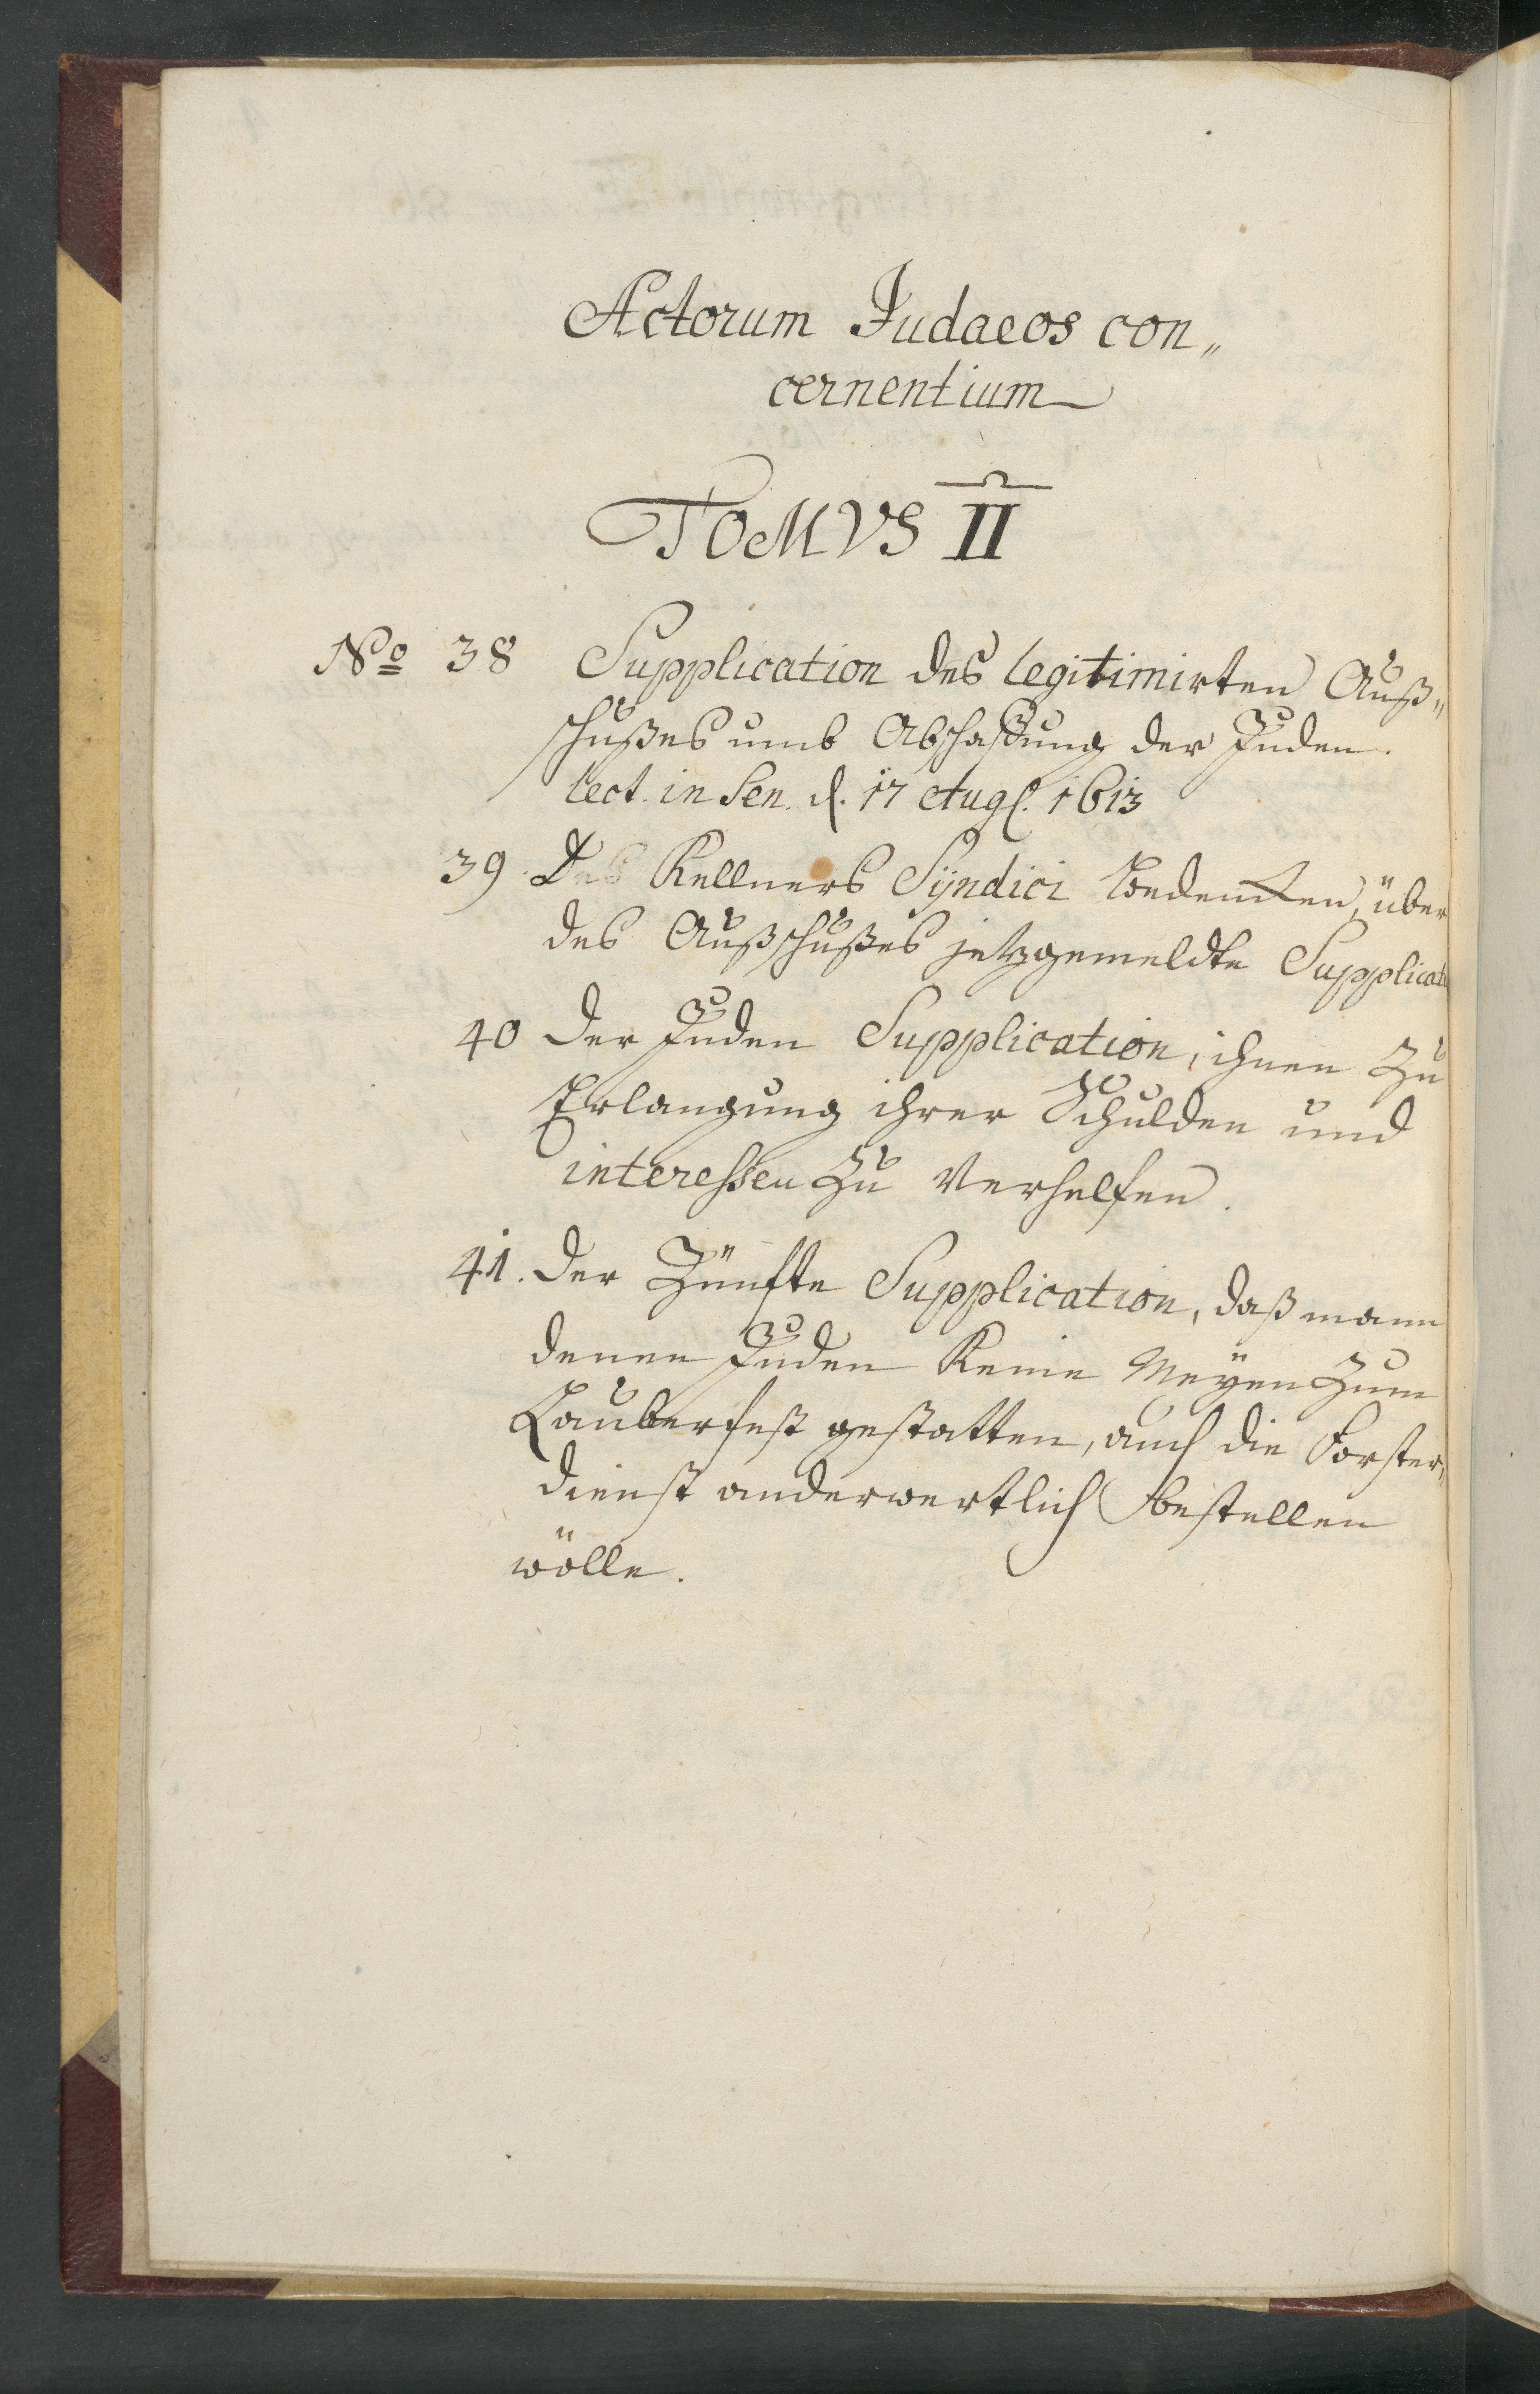 Actorum Judaeos con„
cernentium
TOMVS II
No 38 Supplication des legitimirten Auß„
schußes umb Abschaffung der Juden.
lect. in Sen. d. 17 Aug. 1613
39. Des Kellners Syndici Bedencken, über
des Außschußes jetzgemeldte Supplicat
40 Der Juden Supplication, ihnen Zu
Erlangung ihrer Schulden und
interessen Zu Verhelfen.
41. Der Zünfte Supplication, daß mann
denen Juden Keine Meyen Zum
Lauberfest gestatten, auch die Forster„
dienst anderwertlich bestellen
wölle.